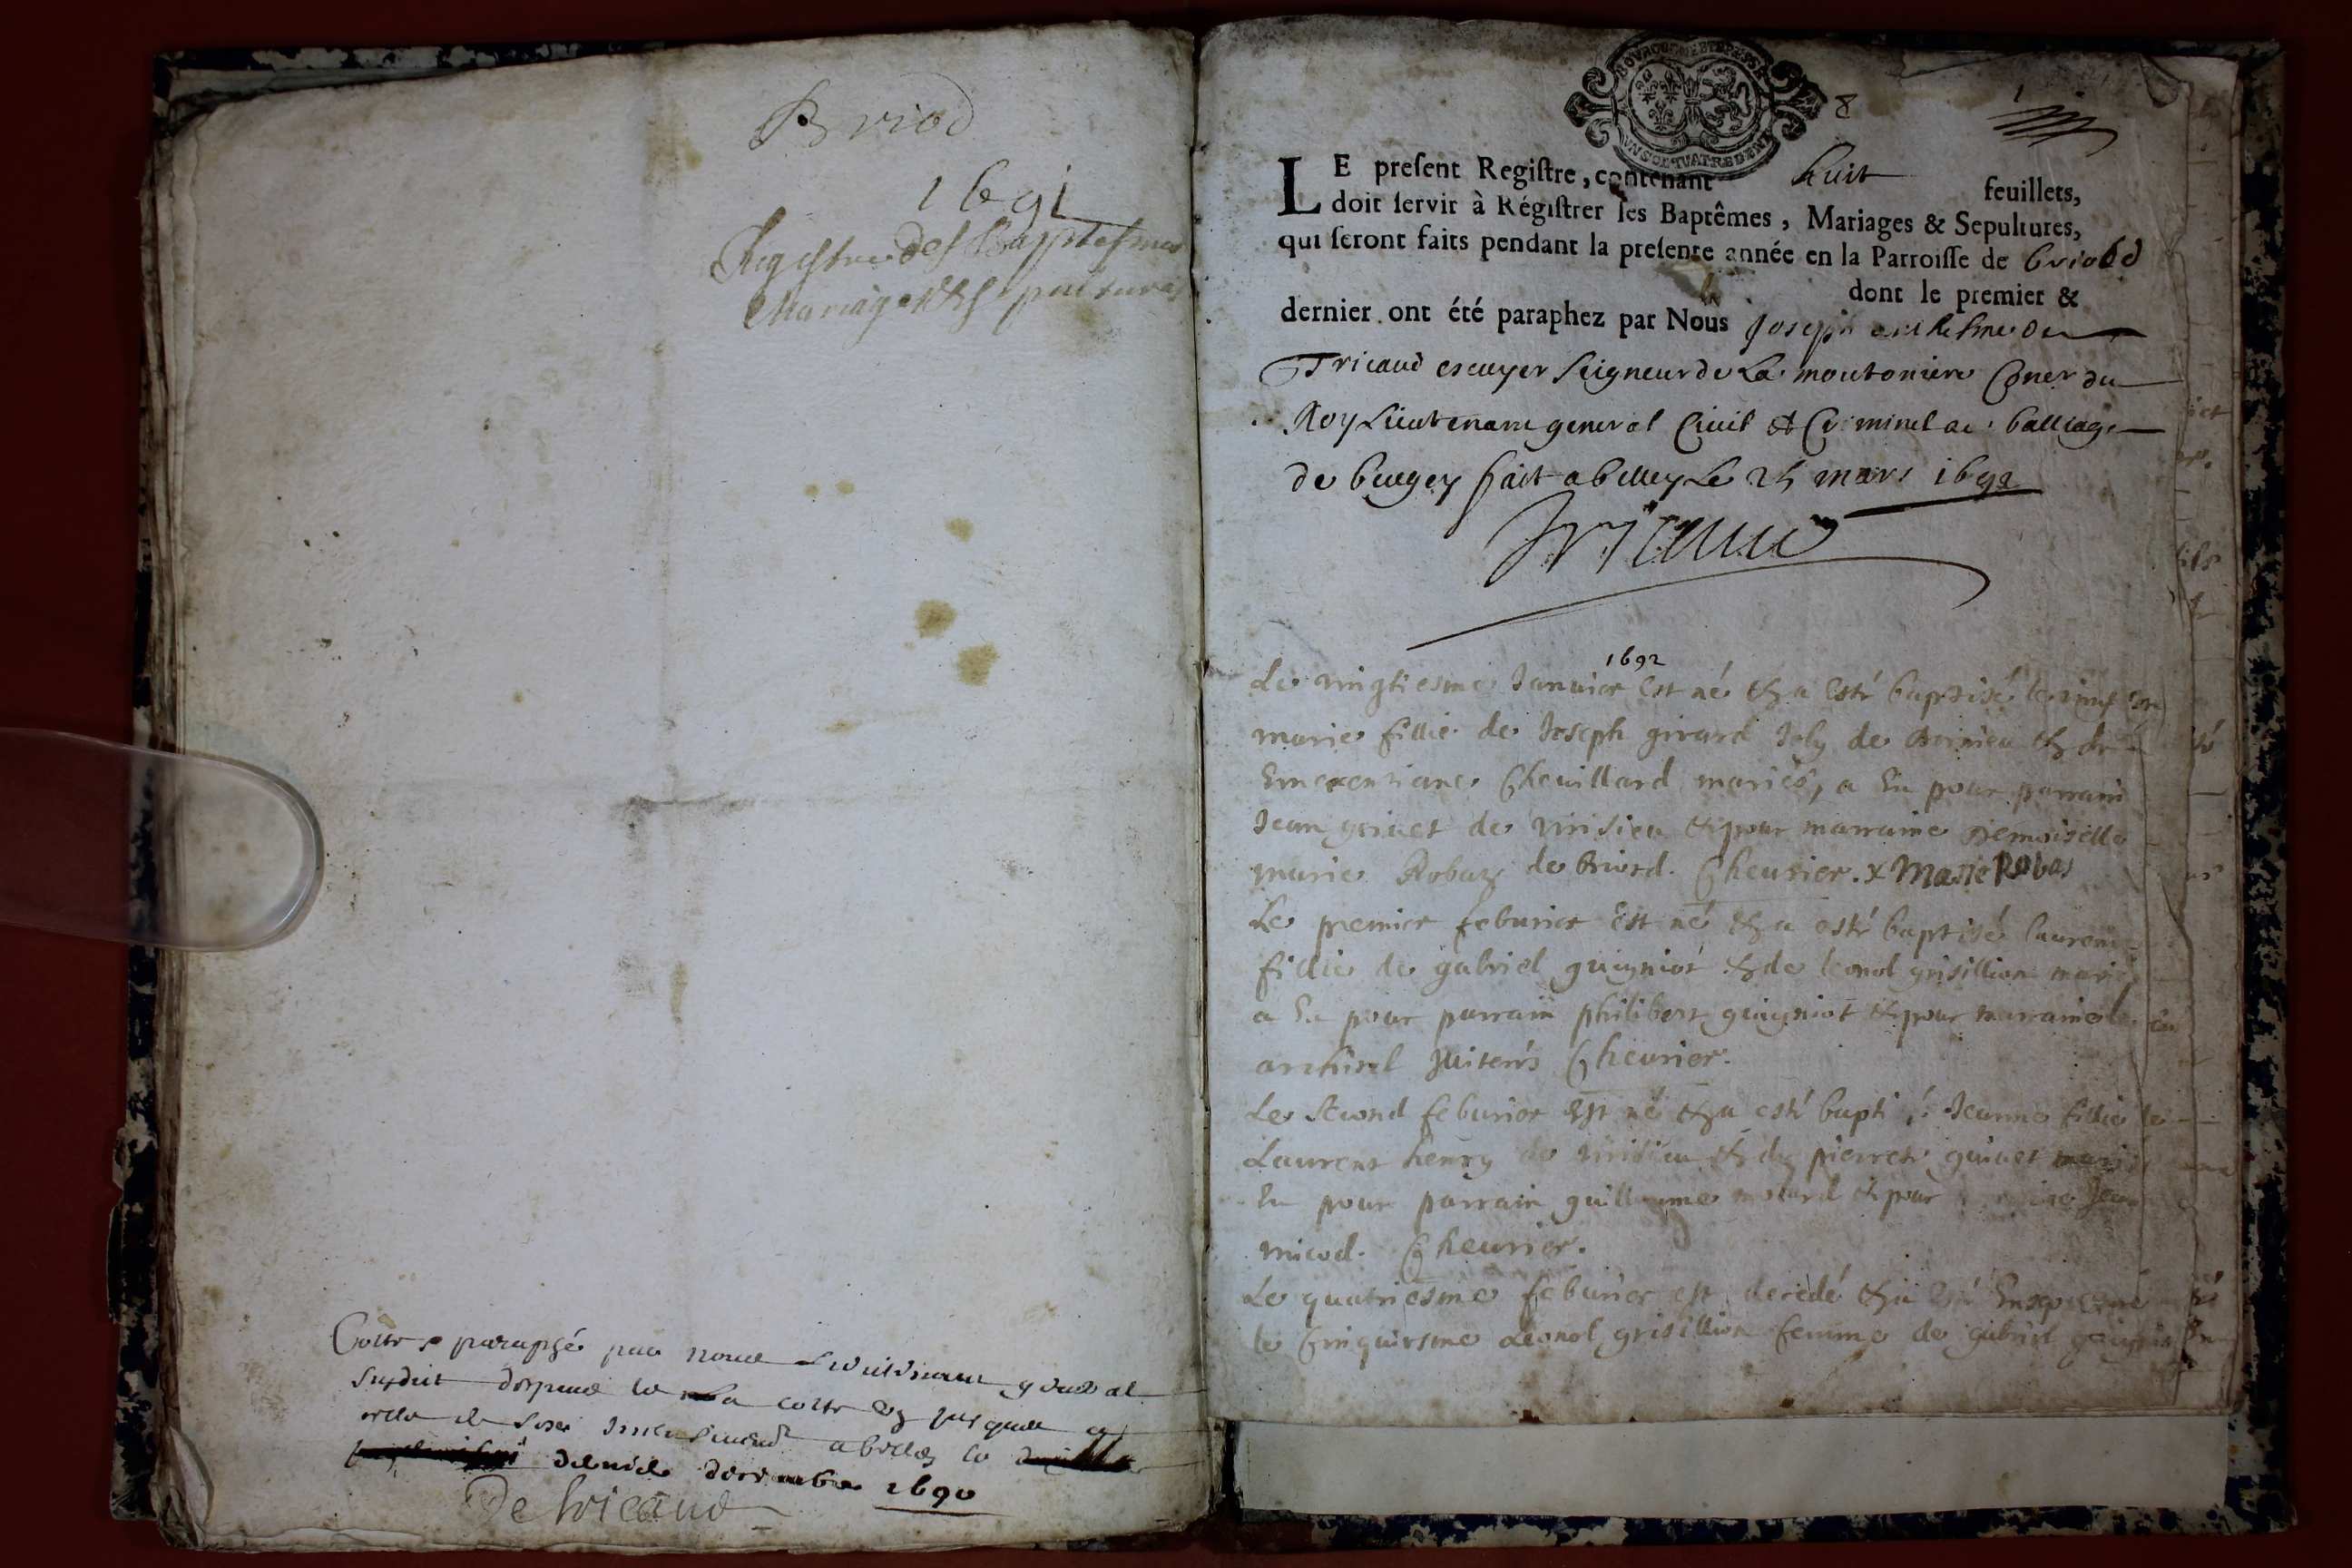 Briod
1691
Registre des Baptesmes
Mariages & Sepultures
Cotté & paraphé par nous Lieutenant general
susdit depuis la cotte jusques a
celle de inclusivement a belley le
dernier decembre 1690
De tricaud
8
LE present Registre, contenant huit feuillets,
doit servir à Régistrer les Baptêmes, Mariages & Sepultures,
qui seront faits pendant la presente année en la Parroisse de briord
dont le premier &
dernier ont été paraphez par Nous Joseph anthelme De
Tricaud escuyer seigneur de La moutoniere Coner du
Roy Lieutenant general Civil & Criminel au balliage
de bugey fait a belley le 25 mars 1692
Tricaud
1692
Le vingtiesme Januier est né & a esté baptisé le vingt
marie fillie de Joseph girard Joly de & de
Emerentiane Cheuillard mariés, a Eu pour parrain
Jean griuet de virisieu & pour marraine Demoiselle
marie Robaz de Briord. Cheurier. x Marie Robas
Le premier feburier est né & a esté baptisé laurent
fillie de gabriel guigniot & de leonol grisillion mariés
a Eu pour parrain philibert guigniot & pour marraine
Cheurier.
Le second feburier Est né & a esté bapti Jeanne fillie de
Laurent henry de virisieu & de pierrete guinet mariés
Eu pour parrain guillaume motard & pour Jean
micod. Cheurier.
Le quatriesme feburier est decedé & a esté Ensepulturé
le Cinquiesme Leonol grisillion femme de gabriel guigniot